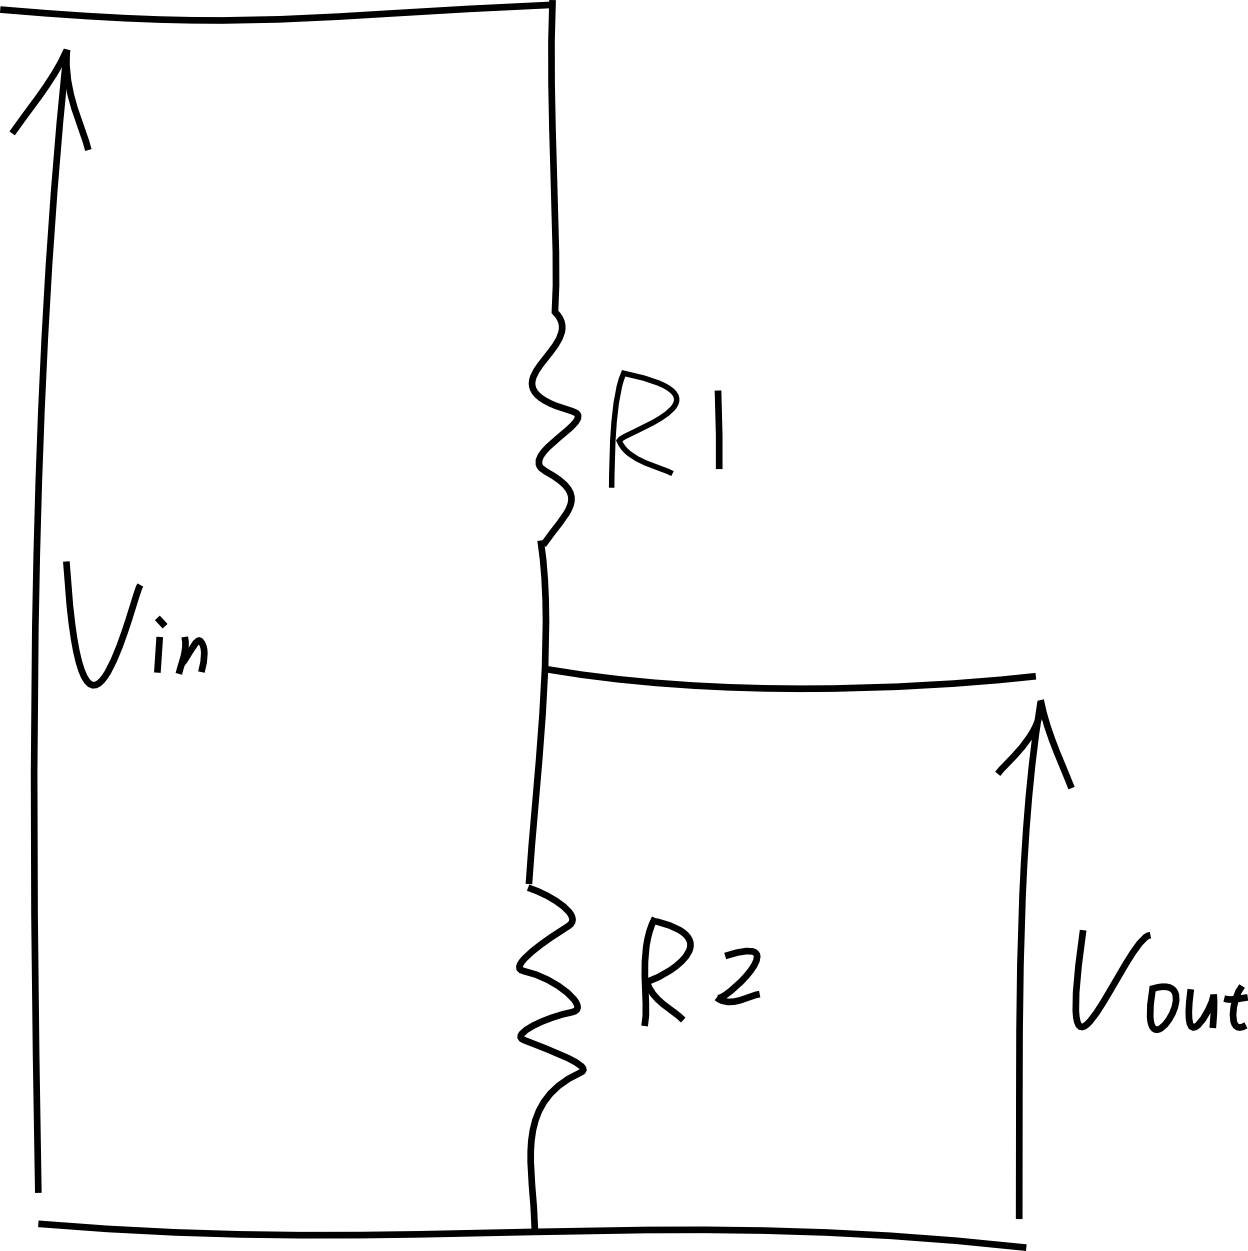 R1
Vin
R2
Vout